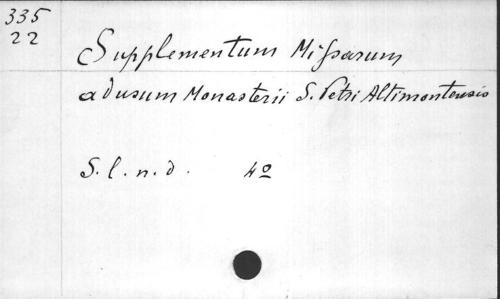 335
22
Supplementum Mißarum
ad usum Monasterii S. Petri Altimontensis
S. l. n. d. 4º